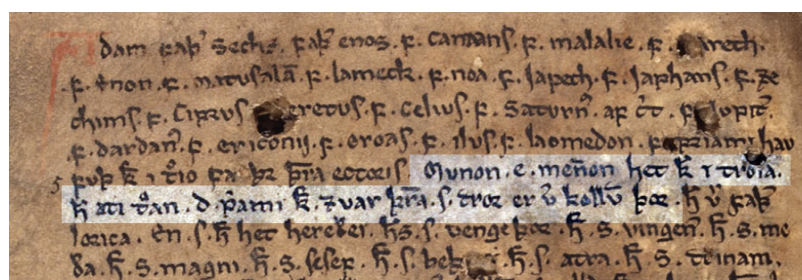 dam faþ' Sechs. faþ' enos. f. canaans. f. malalie. f. areth.
. f. Enon. f. matusalā. f. lamech. f. noa. f. Japeth. f. Japhans. f. ze
chims. f. Ciprus eretus. f. Celius. f. Saturn'. f. Iupit'.
f. dardan'. f. ericonij. f. eroas. f. ilus. f. laomedon. f. priami hau
k̄ i ectoris. Munon. e. men̄on het k̄ i troia.
h̄ ati d p'ami k̄. ⁊ uar s. tror er u' kollū þor. h̄ u' faþ'
lorica. En. s. h̄ het h̄s. s. uengeþor. h̄. S. uingen̄. h̄. S. me
da. h̄. S. magni. h̄. S. sesef. h̄. s. h̄. s. atra. h̄. S.